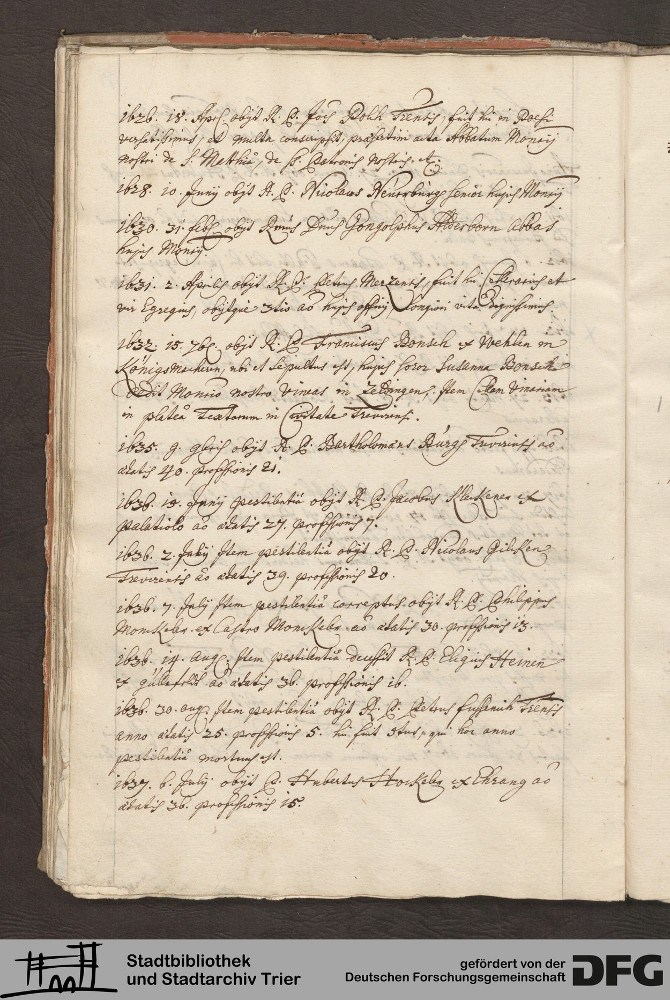 1626. 18. Apr. obijt R. P. Joēs Rohh Trevirs; fuit hic in Poesi
versatissimus, et multa conscripsit, præsertim acta Abbatum Monrij
nostri de S. Mathia, de SS. Patronis nostris etc.
1628. 10. Junij obijt R. P. Nicolaus Neuerburgs senior hujus Monrij
1630. 31. feb. obijt Rmus Dnus Gongolphus Alderborn Abbas
hujus Monrij.
1631. 2. Aprilis obijt R. P. Petrus Merzenis, fuit hic Cellerarius et
vir Egregius, obijtque 3tio ao hujus officij longiori vita dignissimus.
1632. 15. 7br. obijt R. P. Franciscus Bonseh ex Wehlen in
Königsmachern, ubi et sepultus est, hujus soror Susanna Bonseh
dedit Monrio nostro vineas in Zeltingen. Item Cellam vinariam
in platea Textorum in Civitate Treviensi.
1635. 9. obijt R. P. Bartholomæus Bürgs Trevirensis ao
ætatis 40. professionis 21.
1636. 18. Junij pestilentia obijt R. P. Jacobus Kleihener ex
palatiolo ao ætatis 27. professionis 7.
1636. 2. Julij Item pestilentia obijt R. P. Nicolaus Gilehen
Trevirensis ao ætatis 39. professionis 20.
1636. 7. Julij Item pestilentia correptus obijt R. P. Philippus
Monckeler ex Castro Monckeler ao ætatis 30. professionis 13.
1636. 14. aug. Item pestilentia decessit R. P. Eligius Heinen
ex güllesfeldt ao ætatis 36. professionis 16.
1636. 30. aug. Item pestilentia obijt R. P. Petrus fussenich Trensis
anno ætatis 25. professionis 5. hic fuit 5tus, qui hoc anno
pestilentia mortuus est.
1637. 6. Julij obijt P. Hubertus Hockeler ex Ehrang ao
ætatis 36. professionis 15.
Stadtbibliothek
und Stadtarchiv Trier
gefördert von der
Deutschen Forschungsgemeinschaft
DFG